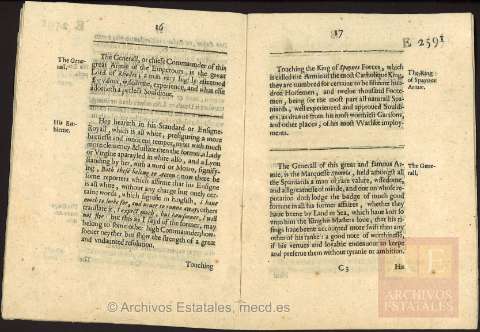 16
The Gene-
rall.
The Generall, or chiefe Commander of this
great Armie of the Emperours, is the great
Lord of Rhodes; a man very highly esteemed
valour, experience, and what else
adorneth a perfect Souldiour.
His En-
signe.
Hee beareth in his Standard or Ensigne-
Royall, which is all white, prefiguring a more
and innocent temper, mixt with much
the forme of a Lady
or Virgine aparayled in white also, and a Lyon
standing by her, with a word or Motto, signify-
ing, Both these belong to
some reporters which affirme that his Ensigne
is all white, without any charge but onely cer-
taine words, which signifie in English, I have
much to looke for, and more to
others
translate it, I expect much, but howsoever, I will
not feare: But this as I said of the former, may
belong to some other high Commander, how-
soever neyther but shew the strength of a great
and undaunted resolution.
Touching
17
E 2591
Touching the King of Spaynes Forces, which
is called the Armie of the most Catholique King,
they are numbred for certaine to be fifteene hun-
dred Horsemen, and twelve thousand Foote-
men, being for the most part all naturall Spa-
niards, well experienced and approved Souldi-
ers, as drawne from his most worthiest Garisons,
and other places, of his most Warlike imploy-
ments.
The King
of Spaynes
Armie.
The Generall of this great and famous Ar-
mie, is the Marquesse Spinola, held amongst all
the Spaniards a man of rare valure, wisedome,
and all greatnesse of minde, and one on whose re-
putation doth lodge the badge of much good
fortune in all his former affaires, whether they
have beene by Land or Sea, which have lost so
vnto him the King his Masters love, that his ri-
sings have beene accounted more swift than any
other of his ranke: a good note of worthinesse,
if his vertues and loyable endevour to keepe
and preserve them without tyranie or ambition.
The Gene-
rall,
C 3
His
© Archivos Estatales, mecd.es
ARCHIVOS
ESTATALES